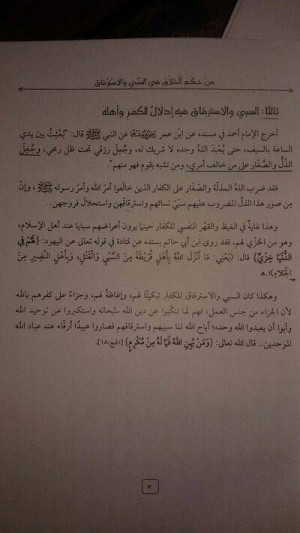 من حكم الخلاق في السبي والاسترقاق
ثالثًا: السبي والاسترقاق فيه إذلال للكفر وأهله
أخرج الإمام أحمد في مسنده عن ابن عمر عن النبي ﷺ قال: "بُعِثْتُ بين يدي
الساعة بالسيف، حتى يُعبَدَ اللهُ وحده لا شريك له، وجُعِلَ رزقي تحت ظل رمحي، وجُعِلَ
الذُّلُّ والصَّغَار على من خالف أمري، ومن تشبه بقوم فهو منهم".
فقد ضرب اللهُ المذلّة والصَّغَار على الكفار الذين خالفوا أمرَ الله وأمرَ رسوله ﷺ، وإنّ
من صور هذا الذلّ المضروب عليهم سبيَ نسائهم واسترقاقهن واستحلالَ فروجهن..
وهذا غايةٌ في الغيظ والقهر النفسي للكفار حينما يرون أعراضهم سبايا عند أهل الإسلام،
وهو من الخزي لهم، فقد روى ابن أبي حاتم بسنده عن قتادة في قوله تعالى عن اليهود: {لَهُمْ فِي
الدُّنْيَا خِزْيٌ} قال: (يَعْنِي: مَا أَنْزَلَ اللهُ بِأَهْلِ قُرَيْظَةَ مِنَ السَّبْيِ وَالْقَتْلِ، وَبِأَهْلِ النَّضِيرِ مِنَ
الْجَلَاءِ) ا.هـ
وهكذا كان السبي والاسترقاق للكفار تبكيتًا لهم، وإغاظةً لهم، وجزاءً على كفرهم بالله
لأن الجزاء من جنس العمل، فهم لما تنكّبوا عن دين الله سبحانه واستكبروا عن توحيد الله
وأبوا أن يعبدوا الله وحده؛ أباح الله لنا سبيهم واسترقاقهم فصاروا عبيدًا أرقّاء عند عباد الله
الموحدين.. قال الله تعالى: {وَمَنْ يُهِنِ اللَّهُ فَمَا لَهُ مِنْ مُكْرِمٍ} [الحج:١٨].
٧